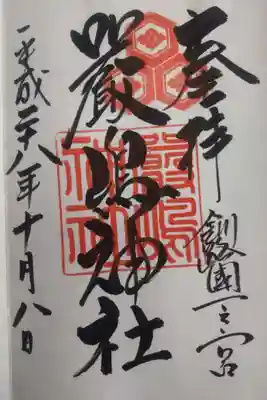 奉拝
釧路國一之宮
嚴島神社
平成二十八年十月八日
嚴島
神社